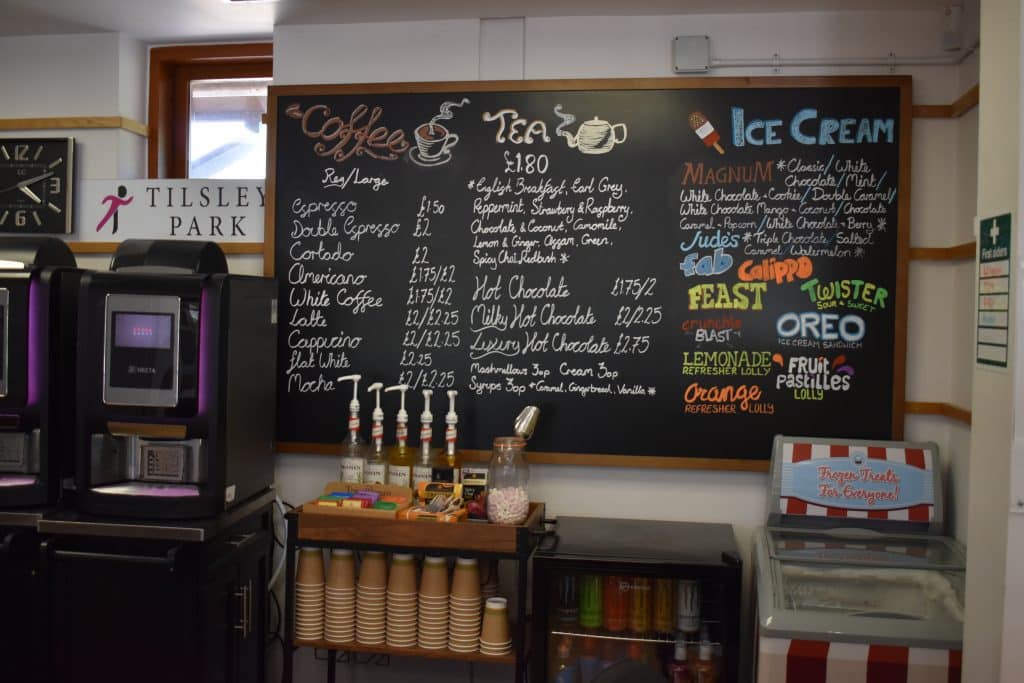 TILSLEY
PARK
Coffee
Reg/Large
Espresso £1.50
Double Espresso £2
Cortado £2
Americano £1.75/£2
White Coffee £1.75/£2
Latte £2/£2.25
Cappucino £2/£2.25
Flat White £2.25
Mocha £2/£2.25
TEA
£1.80
*English Breakfast, Earl Grey,
Peppermint, Strawberry & Raspberry,
Chocolate & Coconut, Camomile,
Lemon & Ginger, Assam, Green,
Spicy Chai, Redbush *
Hot Chocolate £1.75/2
Milky Hot Chocolate £2/2.25
Luxury Hot Chocolate £2.75
Mashmellows 30p Cream 30p
Syrups 30p *Caramel, Gingerbread, Vanilla *
ICE CREAM
MAGNUM *Classic/White
Chocolate/Mint/
White Chocolate + Cookie/Double Caramel/
White Chocolate Mango + Coconut/Chocolate
Caramel + Popcorn/White Chocolate + Berry *
Jude's *Triple Chocolate/Salted
Caramel/Watermelon *
fab Calippo
FEAST TWISTER
SOUR & SWEET
crunchie
BLAST
OREO
ICE CREAM SANDWICH
LEMONADE
REFRESHER LOLLY
FRUIT
PASTILLES
LOLLY
Orange
REFRESHER LOLLY
First aiders
Frozen Treats
For Everyone!
MONIN